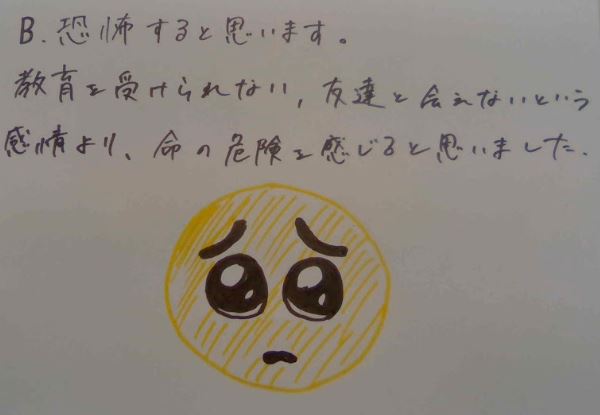 B. 恐怖すると思います。
教育を受けられない, 友達と会えないという
感情より、命の危険を感じると思いました.